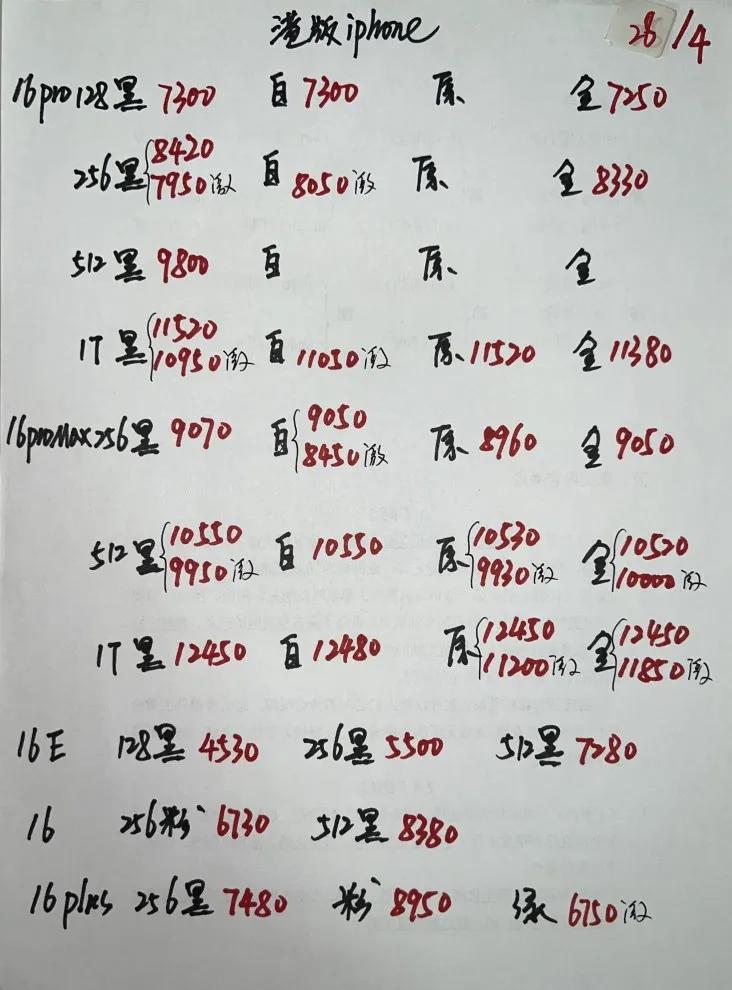 港版iphone 28/4
16pro128黑 7300 白 7300 原 金 7250
256黑 8420 7950激 白 8050激 原 金 8330
512黑 9800 白 原 金
1T黑 11520 10950激 白 11050激 原 11520 金 11380
16proMax256黑 9070 白 9050 8450激 原 8960 金 9050
512黑 10550 9950激 白 10550 原 10530 9930激 金 10520 10000激
1T黑 12450 白 12480 原 12450 11200激 金 12450 11850激
16E 128黑 4530 256黑 5500 512黑 7280
16 256粉 6730 512黑 8380
16plus 256黑 7480 粉 8950 绿 6750激